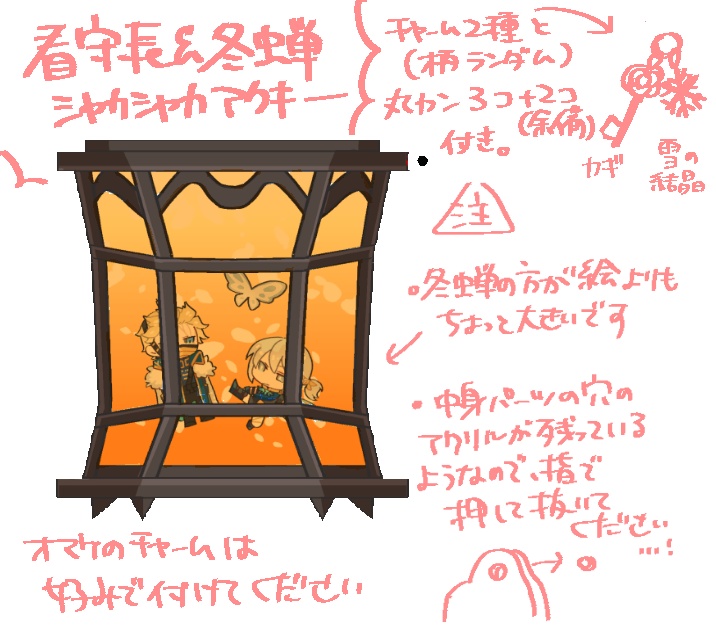 看守長&冬蝉
シャカシャカアクキー
チャーム2種と
(柄ランダム)
丸カン3コ+2コ
(余備)
付き。
カギ
雪の
結晶
注
・冬蝉の方が絵よりも
ちょっと大きいです
・中身パーツの穴の
アクリルが残っている
ようなので、指で
押して抜いて
ください
…!
オマケのチャームは
好みで付けてください